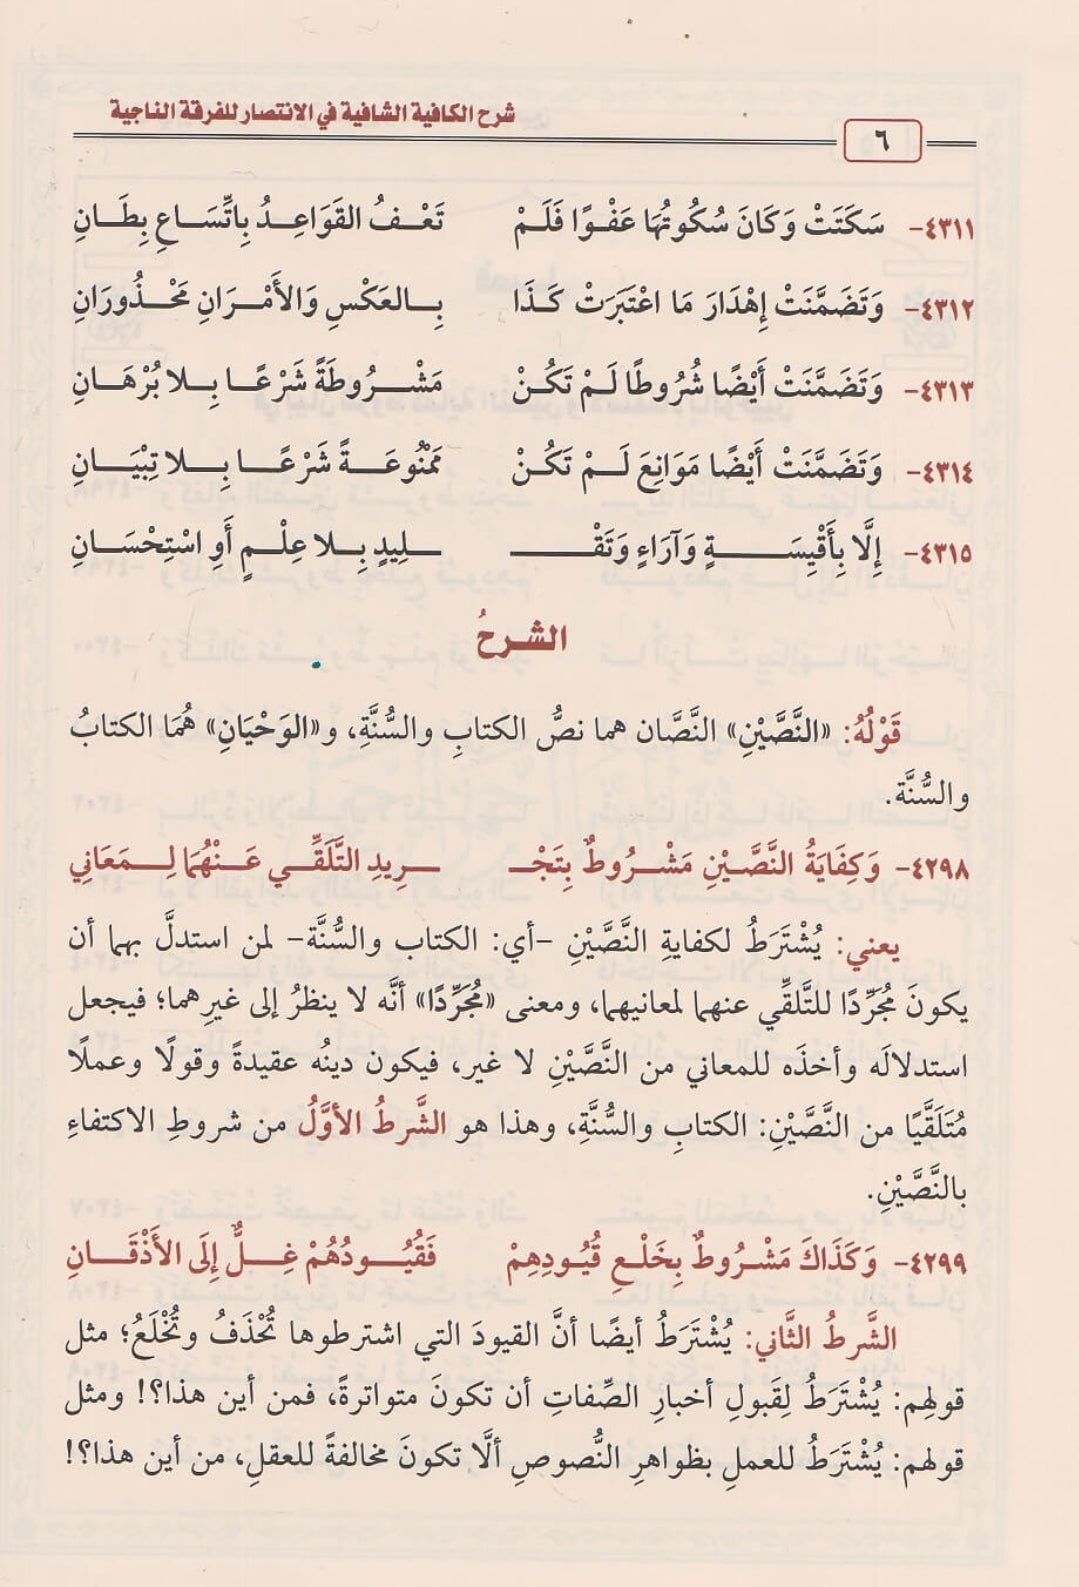 شرح الكافية الشافية في الانتصار للفرقة الناجية
٦
٤٣١١- سَكَتَتْ وَكَانَ سُكُوتُهَا عَفْوًا فَلَمْ تَعْـفُ القَوَاعِـدُ بِاتِّسَـاعِ بِطَـانِ
٤٣١٢- وَتَضَمَّنَتْ إِهْدَارَ مَا اعْتَبَرَتْ كَـذَا بِـالعَكْسِ وَالأَمْـرَانِ مَحْـذُورَانِ
٤٣١٣- وَتَضَمَّنَتْ أَيْضًا شُرُوطًا لَمْ تَكُنْ مَشْـرُوطَةً شَرْعًـا بِـلا بُرْهَـانِ
٤٣١٤- وَتَضَمَّنَتْ أَيْضًا مَوَانِعَ لَـمْ تَكُنْ مَمْنُوعَـةً شَرْعًـا بِـلا تِبْيَـانِ
٤٣١٥- إِلَّا بِأَقْيِسَـةٍ وَآرَاءٍ وَتَقْـ ـلِيدٍ بِـلا عِلْـمٍ أَوِ اسْتِحْسَـانِ
الشـرحُ
قَوْلُهُ: «النَّصَّيْنِ» النَّصَّان هما نصُّ الكتابِ والسُّنَّةِ، و«الوَحْيَانِ» هُمَا الكتابُ
والسُّنَّة.
٤٢٩٨- وَكِفَايَةُ النَّصَّيْنِ مَشْـرُوطٌ بِتَجْـ ـرِيدِ التَّلَقِّـي عَـنْهُمَا لِـمَعَانِي
يعني: يُشْتَرَطُ لكفايةِ النَّصَّيْنِ -أي: الكتاب والسُّنَّة- لمن استدلَّ بهما أن
يكونَ مُجَرِّدًا للتَّلقِّي عنهما لمعانيهما، ومعنى «مُجَرِّدًا» أنَّه لا ينظرُ إلى غيرِهما؛ فيجعل
استدلالَه وأخذَه للمعاني من النَّصَّيْنِ لا غير، فيكون دينُه عقيدةً وقولًا وعملًا
مُتَلَقَّيًا من النَّصَّيْنِ: الكتابِ والسُّنَّةِ، وهذا هو الشَّرطُ الأوَّلُ من شروطِ الاكتفاءِ
بالنَّصَّيْنِ.
٤٢٩٩- وَكَذَاكَ مَشْـرُوطٌ بِخَلْـعِ قُيُودِهِمْ فَقُيُـودُهُمْ غِـلٌّ إِلَى الأَذْقَـانِ
الشَّرطُ الثَّاني: يُشْتَرَطُ أيضًا أنَّ القيودَ التي اشترطوها تُحْذَفُ وتُخْلَعُ؛ مثل
قولِهم: يُشْتَرَطُ لِقَبولِ أخبارِ الصِّفاتِ أن تكونَ متواترةً، فمن أين هذا؟! ومثل
قولهم: يُشْتَرَطُ للعملِ بظواهرِ النُّصوصِ ألَّا تكونَ مخالفةً للعقلِ، من أين هذا؟!